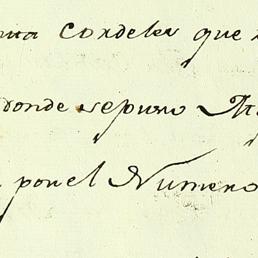 cordeles que
donde sepuso
por el Numero